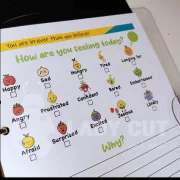 You are braver than you believe
How are you feeling today?
Happy
Sad
Hungry
Tired
Longing for
Angry
Frustrated
Confident
Bored
Embarrassed
Afraid
Surprised
Excited
Jealous
Lonely
Why?